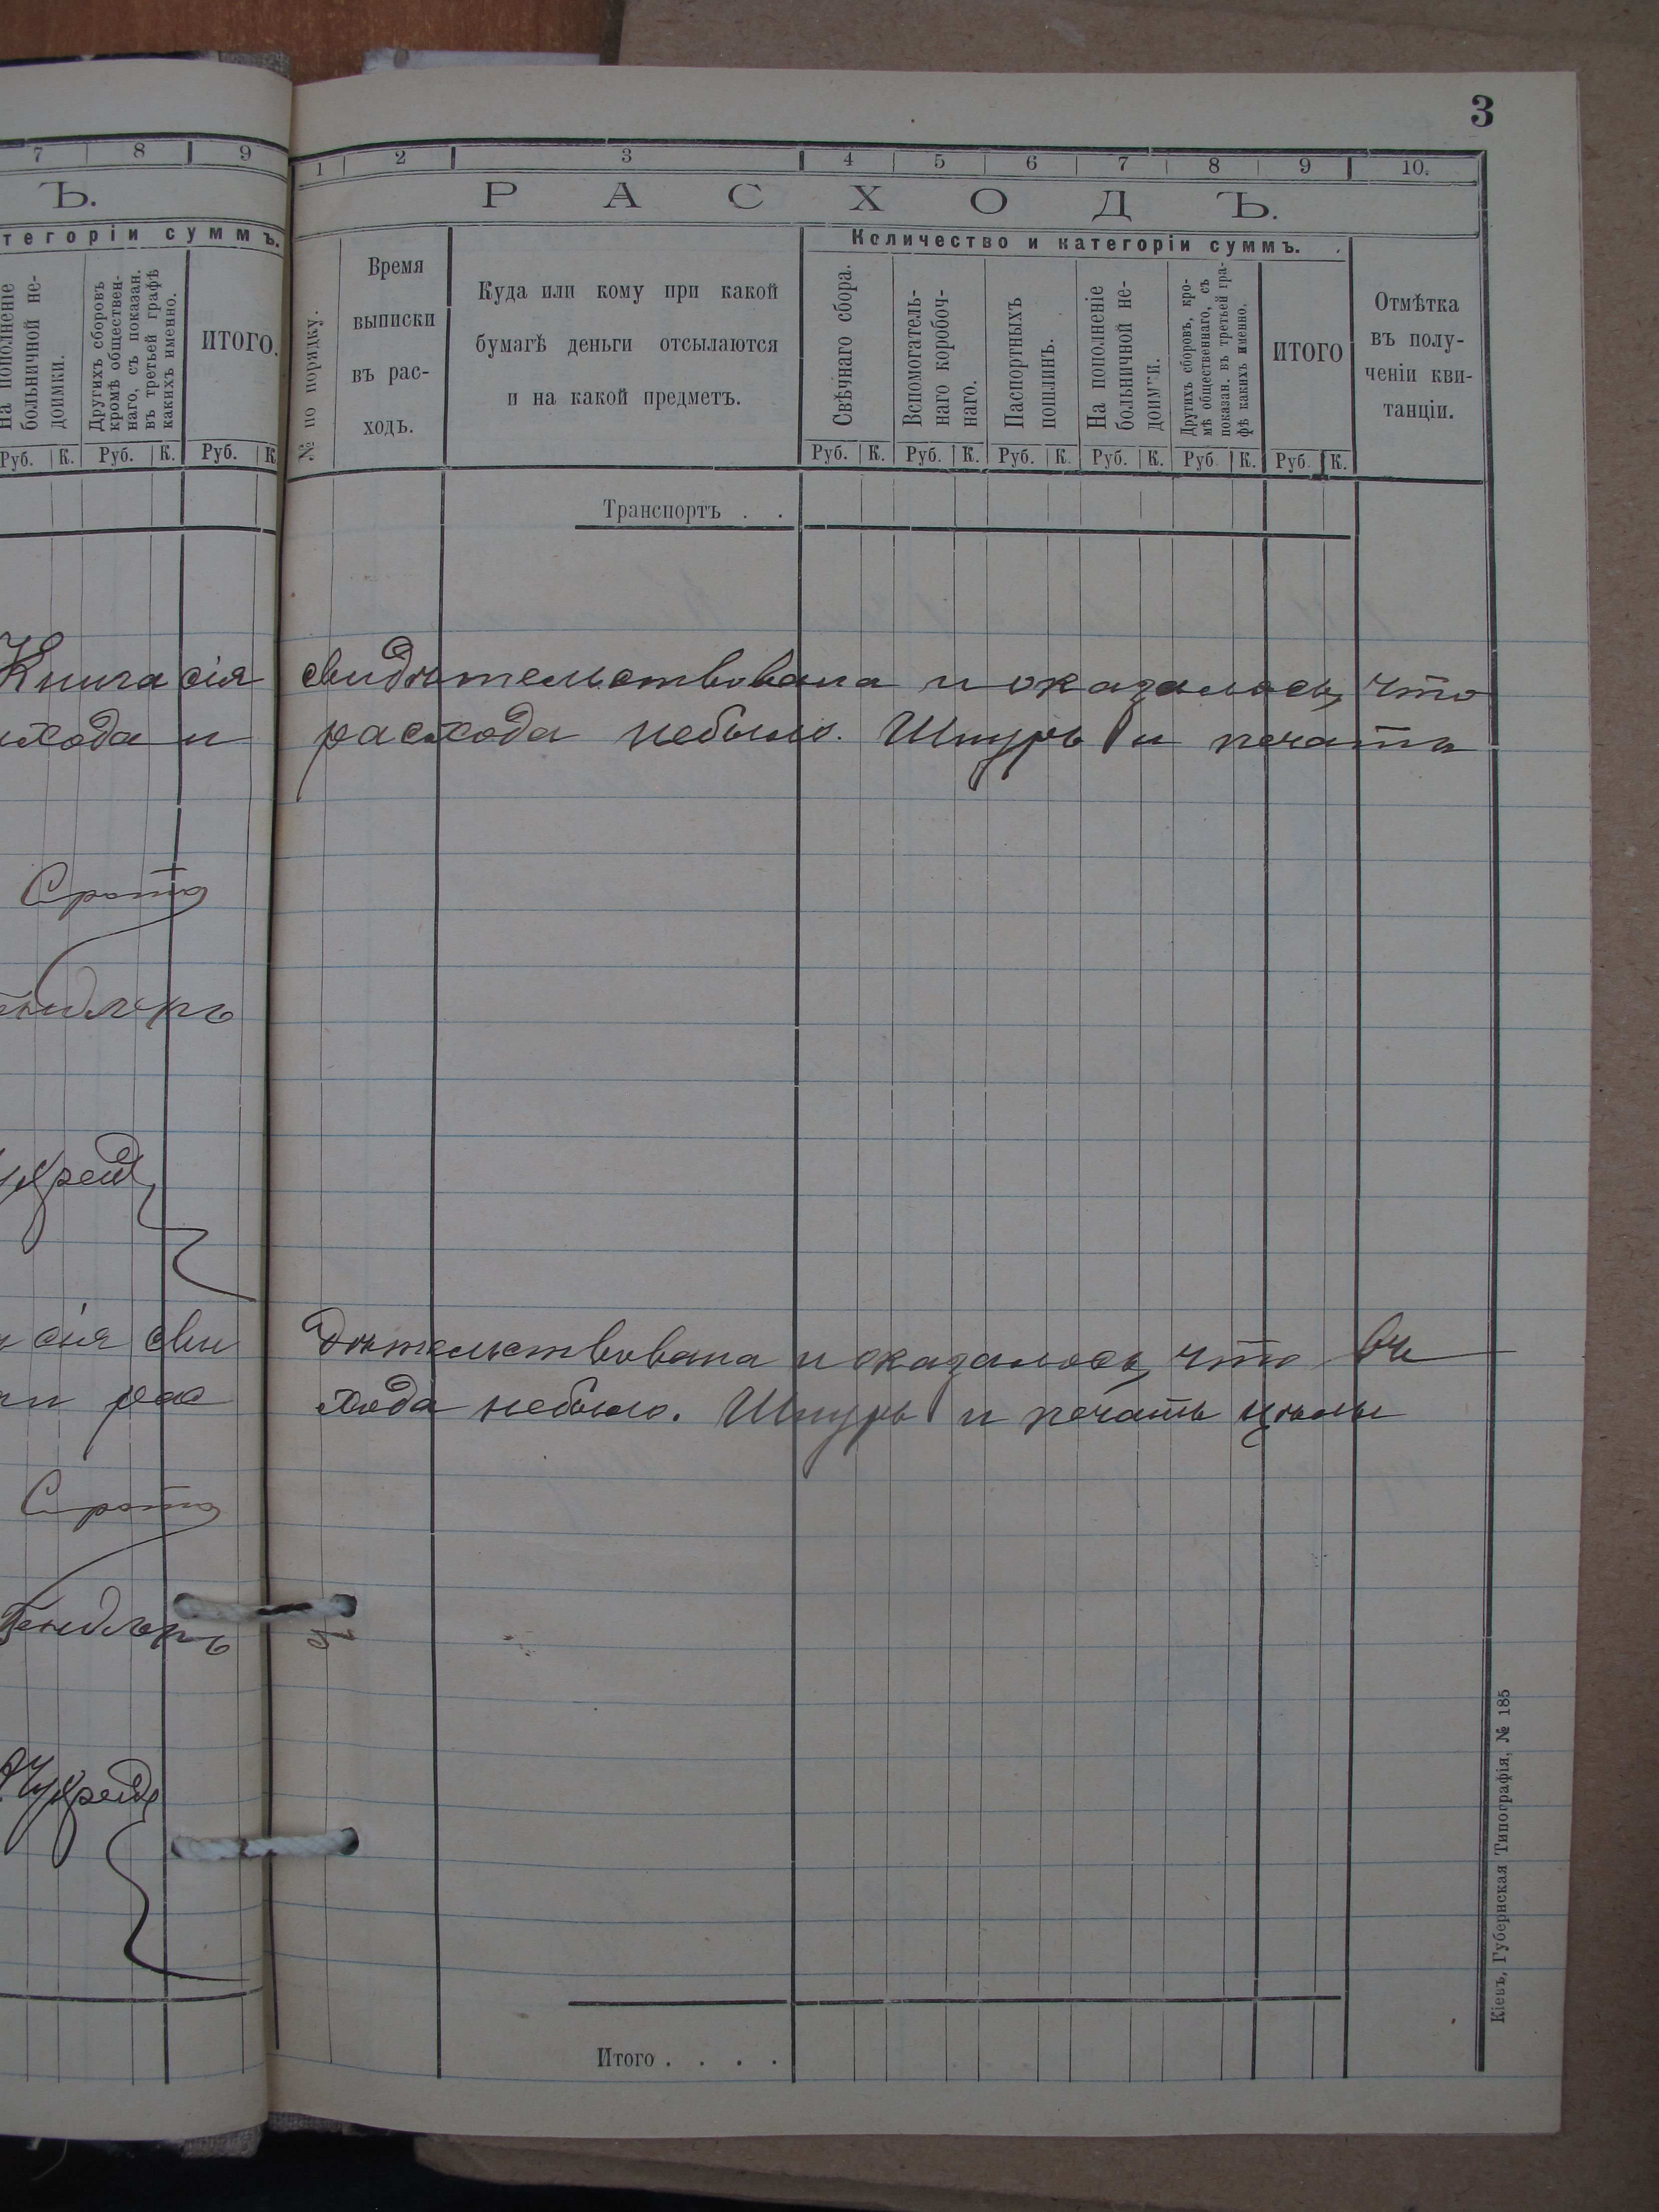 3
7 8 9
Ъ.
тегоріи суммъ.
На пополненіе
больничной не-
доимки.
Другихъ сборовъ
кромѣ обществен-
наго, съ показан.
въ третьей графѣ
какихъ именно.
ИТОГО.
Руб. К. Руб. К. Руб. К
Книга сія
хода и
сія сви
рас
1 2 3 4 5 6 7 8 9 10.
РАСХОДЪ.
№ по порядку.
Время
выписки
въ рас-
ходъ.
Куда или кому при какой
бумагѣ деньги отсылаются
и на какой предметъ.
Количество и категоріи суммъ.
Свѣчнаго сбора.
Вспомогатель-
наго коробоч-
наго.
Паспортныхъ
пошлинъ.
На пополненіе
больничной не-
доимки.
Другихъ сборовъ, кро-
мѣ общественнаго, съ
показан. въ третьей гра-
фѣ какихъ именно.
ИТОГО
Отмѣтка
въ полу-
ченіи кви-
танціи.
Руб. К. Руб. К. Руб. К. Руб. К. Руб. К. Руб. К.
Транспортъ . .
свидѣтельствована и оказалось, что
расхода небыло. Шнуръ и печать
дѣтельствована и оказалось, что
хода небыло. Шнуръ и печать цѣлы
Итого . . . .
Кіевъ, Губернская Типографія, № 185